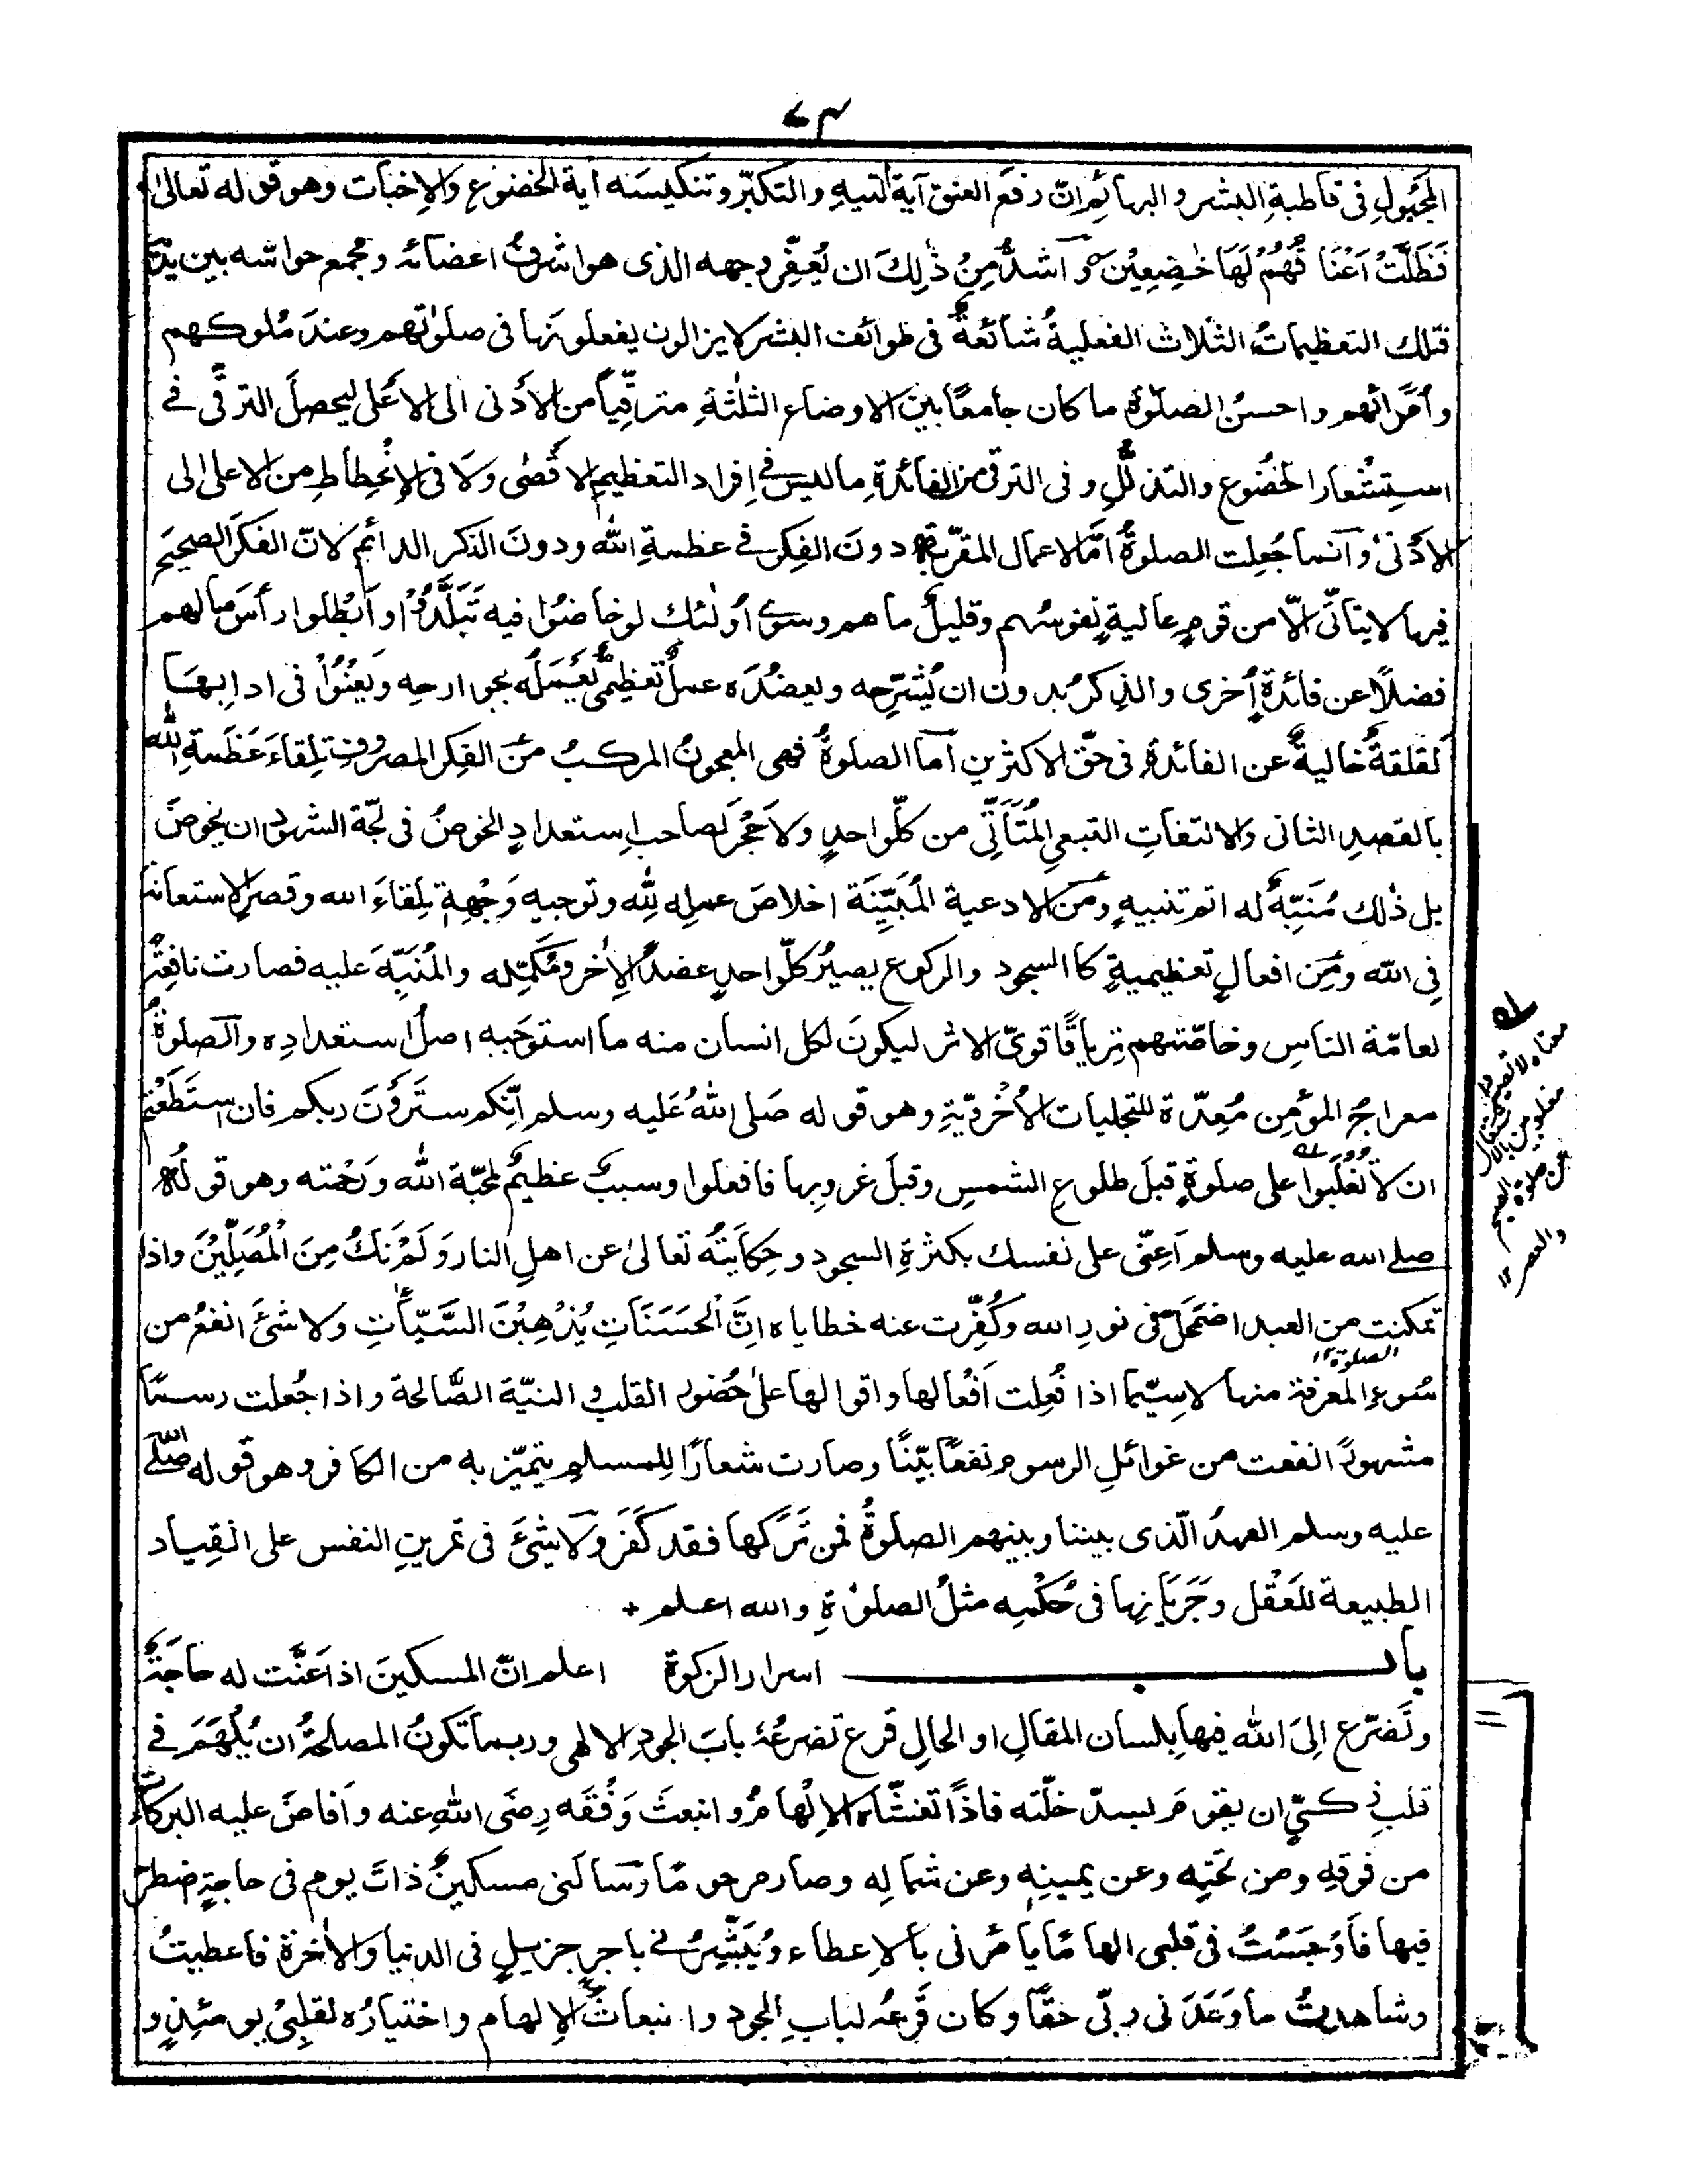 ٧٣
المجبولِ فى قاطبةِ البشر والبهائم ان رفعَ العنق آيةُ التيهِ والتكبّر وتنكيسَه آيةُ الخضوعِ والإخبات وهو قوله تعالىٰ
فَظَلَّتْ اَعْنَا قُهُمْ لَهَا خٰضِعِيْنَ وآشدُّ مِنْ ذٰلِكَ ان يُعفِّر وجهه الذى هو اشرفُ اعضائه ومجمع حواسّه بين يدَيْه
فتلك التعظيماتُ الثلاث الفعليةُ شائعةٌ فى طوائف البشر لا يزالون يفعلونها فى صلوٰتهم وعندَ مُلوكهم
وأمَرائهم واحسنُ الصلوٰة ما كان جامعًا بين الاوضاع الثلٰثةِ مترقِّياً من الأدنى الى الاَعلى ليحصلَ الترقّى فى
استِشْعار الخضُوع والتذلّلِ وفى الترقى من الفائدةِ ما ليس فى اِفراد التعظيم الاقصٰى ولا فى الاِنْحِطاطِ من الاعلى الى
الاَدْنٰى وآنما جُعِلت الصلوةُ امَّ الاعمال المقرّبة دونَ الفِكر فى عظمةِ الله ودونَ الذكر الدائم لانّ الفكرَ الصحيحَ
فيها لا يتأتّى اِلّا من قومٍ عاليةٍ نفوسُهم وقليلٌ ما هم وسوى اُولٰئك لو خاضُوا فيه تَبَلَّدُوْا واَبْطلوا رأسَ مالهم
فضلاً عن فائدةٍ اُخرى والذِكرُ بدون ان يُشرّحه ويعضُدَه عملٌ تعظيمىٌّ يَعْمَلُه بجوارحِه ويَعْنُوْا فى ادابها
لَقلقةٌ خاليةٌ عن الفائدة فى حقّ الاكثرين آما الصلوةُ فهى المعجونُ المركبُ من الفِكر المصروفِ تِلقاءَ عَظَمةِ الله
بالقصدِ الثانى والالتفاتِ التبعىِ المُتَأَتِّى من كلّ واحدٍ ولاَ حَجْرَ لصاحبِ استعدادٍ الخوضُ فى لجّة الشهودِ ان يخوضَ
بل ذٰلك مُنَبِّهٌ له اتم تنبيهٍ ومن الادعية المُبَيِّنَة اخلاصَ عملِه لِلّٰه وتوجيهِ وَجْهِهٖ تِلقاءَ الله وقصرِ الاستعانة
فِى الله ومِن افعالٍ تعظيميةٍ كالسجود والركوع يصيرُ كلّ واحدٍ عضدًا لِاٰخر ومُكمِّله والمُنَبِّهَ عليه فصارت نافِعةً
لعامّة الناسِ وخاصّتهم تِرياقًا قوىَّ الاثر ليكونَ لكل انسان منه ما استوجَبه اصلُ استعدادِه والصلوةُ
معراجُ المؤمِن مُعِدّة للتجليات الاُخْرويّةِ وهو قوله صَلى اللهُ عَليه وسلم اِنّكم ستَرَوْنَ ربكم فان استَطَعْتم
ان لاّ تُغْلَبُوا على صلوةٍ قبلَ طلوعِ الشمسِ وقبلَ غروبِها فافعلوا وسببٌ عظيمٌ لمحبّة الله ورَحْمته وهو قولُه
صلے الله عليه وسلم اَعِنّى على نفسك بكثرةِ السجود وحِكايتُه تعالىٰ عن اهلِ النار وَلَمْ نَكُ مِنَ الْمُصَلِّيْنَ واذا
تمكنت من العبد اضمحَلّ فى نورِ الله وكُفِّرت عنه خطاياه اِنَّ الْحَسَنَاتِ يُذْهِبْنَ السَّيِّاٰتِ ولا شئَ انفعُ من
الصلوة ١٢
سُوءِ المعرفة منها لاسِيّما اذا فُعِلت اَفْعالها واقوالها علىٰ حُضورِ القلب والنيّة الصّالحة واذا جُعلت رسمًا
مشهودًا نفعت من غوائلِ الرسوم نفعًا بيّنًا وصارت شعارًا لِلمسلم يتميّز به من الكافر وهو قوله صلّى الله
عليه وسلم العهدُ الّذى بيننا وبينهم الصلوةُ فمن تَرَكها فقد كَفَرَ ولاَ شئَ فى تمرينِ النفس على انقِياد
الطبيعة للعَقْل وجَرَيَانِها فى حُكْمِه مثلُ الصلوٰةِ والله اعلم +
باب اسرار الزكوة اعلم انّ المسكينَ اذا عَنَّت له حاجَةٌ
وتَضرّع اِلىَ الله فيها بِلسان المقالِ او الحالِ قرع تضرعُه بابَ الجودِ الالٰهى وربما تكونُ المصلحةُ ان يُلْهَمَ فى
قلبِ زكىٍّ ان يقومَ بسدّ خلّته فاذا تغشّاه الاِلْهامُ وانبعثَ وَفْقَه رضىَ الله عنه وأفاضَ عليه البركات
من فوقهِ ومن تحتِه وعن يمينِه وعن شمالِه وصار مرحومًا وسَاَلنى مسكينٌ ذاتَ يوم فى حاجةٍ اضطرّ
فيها فأوْجَسْتُ فى قلبى الهامًا يأمُرنى بالاِعطاء ويُبَشِّرُنى باجرٍ جزيلٍ فى الدنيا والاٰخرة فاعطيتُ
وشاهدتُ ما وَعَدَنى ربّى حقًّا وكان قَرعُه لبابِ الجود وانبعاثُ الاِلهام واختيارُه لقلبِىْ يومئذٍ و
له
معناه لا تصيروا
مغلوبين بالاشتغال
عن صلوة الفجر
والعصر ١٢